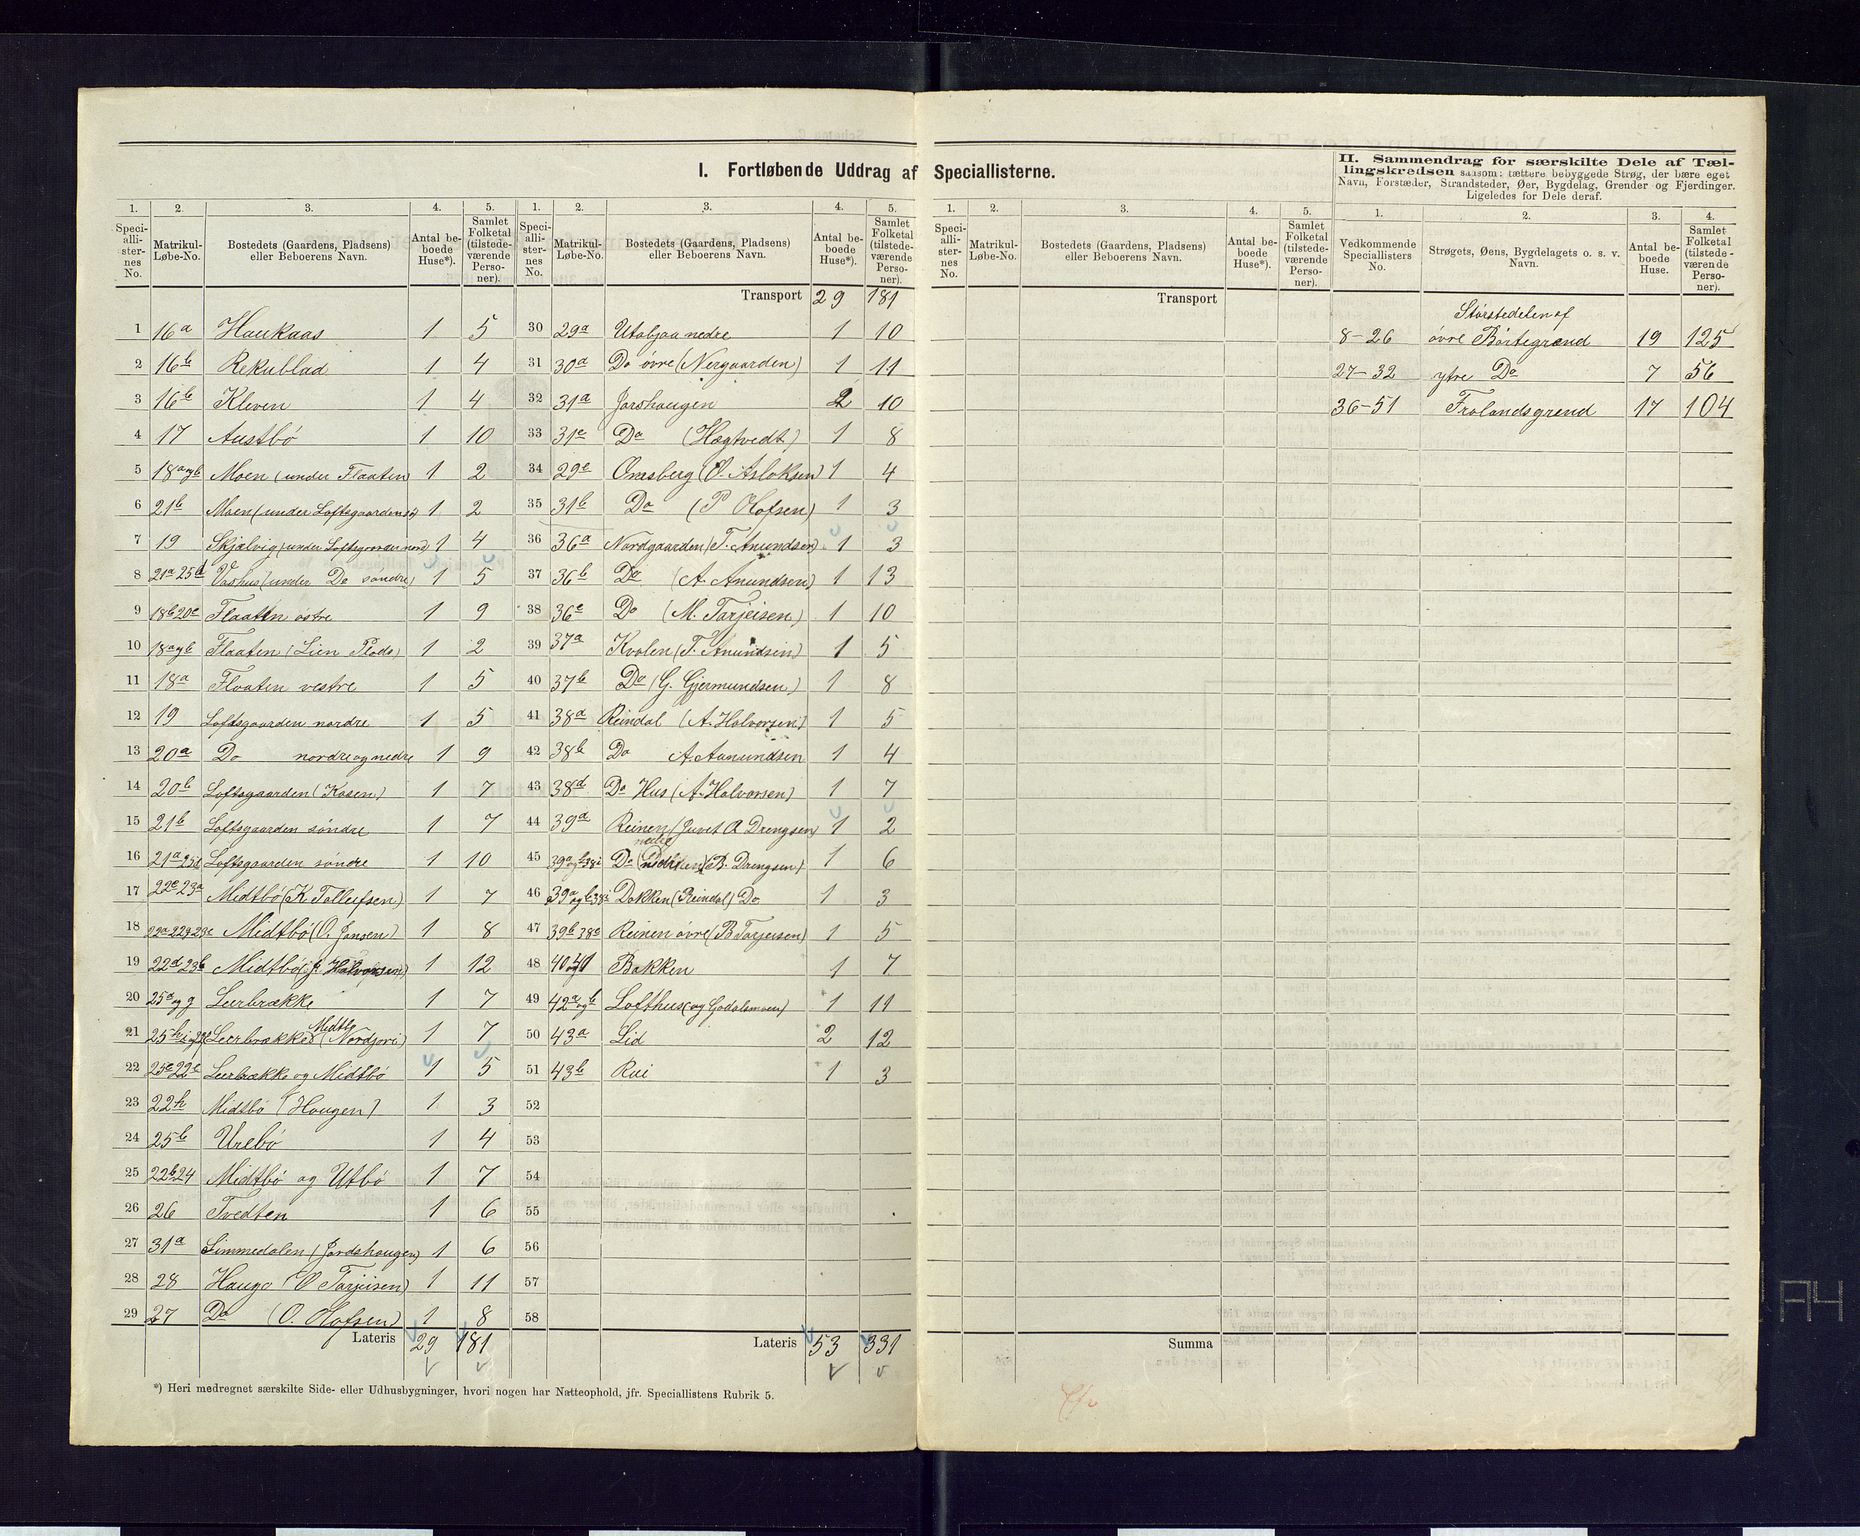 I. Fortløbende Uddrag af Speciallisterne.
1. 2. 3. 4. 5.
Speciallisternes No. Matrikul-Løbe-No. Bostedets (Gaardens, Pladsens) eller Beboerens Navn. Antal beboede Huse*). Samlet Folketal (tilstedeværende Personer).
1 16a Haukaas 1 5
2 16b Rekublad 1 4
3 16b Kleven 1 4
4 17 Austbö 1 10
5 18a og b Moen (under Flaaten) 1 2
6 21b Moen (under Loftsgaarden sö) 1 2
7 19 Skjælvig (under Loftsgaarden nord) 1 4
8 21a 25d Vashus (under Do söndre) 1 5
9 18b 20c Flaaten östre 1 9
10 18a og b Flaaten (Lien Plads) 1 2
11 18a Flaaten vestre 1 5
12 19 Loftsgaarden nordre 1 5
13 20a Do nordre og nedre 1 9
14 20b Loftsgaarden (Kosen) 1 7
15 21b Loftsgaarden söndre 1 7
16 21a 25d Loftsgaarden söndre 1 10
17 22c 23a Midtbö (K Tollefsen) 1 7
18 22a 22g 23c Midtbö (O. Jansen) 1 8
19 22d 23b Midtbö (J. Halvorsen) 1 12
20 25a og g Leirbrække 1 7
21 25h Leirbrække Midtb (Nordgori) 1 7
22 25c 22e Leirbrække og Midtbö 1 5
23 22h Midtbö (Haugen) 1 3
24 25b Urebö 1 4
25 22b 24 Midtbö og Utbö 1 7
26 26 Tvedten 1 6
27 31a Simmedalen (Jordshaugen) 1 6
28 28 Haugo (O Tarjeisen) 1 11
29 27 Do (O. Hofsen) 1 8
Lateris 29 181
1. 2. 3. 4. 5.
Speciallisternes No. Matrikul-Løbe-No. Bostedets (Gaardens, Pladsens) eller Beboerens Navn. Antal beboede Huse*). Samlet Folketal (tilstedeværende Personer).
Transport 29 181
30 29a Utabjaa nedre 1 10
31 30a Do övre (Nergaarden) 1 11
32 31a Jorshaugen 2 10
33 31c Do (Hægtvedt) 1 8
34 29c Omsberg (O. Asloksen) 1 4
35 31b Do (P Olofsen) 1 3
36 36a Nordgaarden (T. Anundsen) 1 3
37 36b Do (A. Anundsen) 1 13
38 36c Do (M. Tarjeisen) 1 10
39 37a Kvalen (T. Anundsen) 1 5
40 37b Do (G. Gjermundsen) 1 8
41 38a Reindal (A. Halvorsen) 1 5
42 38b Do A. Aanundsen 1 4
43 38d Do Hus (A. Halvorsen) 1 7
44 39a Reinen (Juvet A Drengsen) 1 2
45 39a og b 38i Do nedre (B. Drengsen) 1 6
46 39a og b 38i Dokken (Reindal) Do 1 3
47 39b 38c Reinen övre (B Tarjeisen) 1 5
48 40 og 41 Bakken 1 7
49 42a og b Lofthus (og Godalsmoen) 1 11
50 43a Lid 2 12
51 43b Rui 1 3
52
53
54
55
56
57
58
Lateris 53 331
*) Heri medregnet særskilte Side- eller Udhusbygninger, hvori nogen har Natteophold, jfr. Speciallistens Rubrik 5.
1. 2. 3. 4. 5.
Speciallisternes No. Matrikul-Løbe-No. Bostedets (Gaardens, Pladsens) eller Beboerens Navn. Antal beboede Huse*). Samlet Folketal (tilstedeværende Personer).
Transport
Summa
II. Sammendrag for særskilte Dele af Tællingskredsen saasom: tættere bebyggede Strøg, der bære eget
Navn, Forstæder, Strandsteder, Øer, Bygdelag, Grender og Fjerdinger.
Ligeledes for Dele deraf.
1. 2. 3. 4.
Vedkommende Speciallisters No. Strøgets, Øens, Bygdelagets o. s. v. Navn. Antal beboede Huse. Samlet Folketal (tilstedeværende Personer).
Störstedelen af
8-26 övre Börtegrænd 19 125
27-32 ytre Do 7 56
36-51 Frolandsgrend 17 104